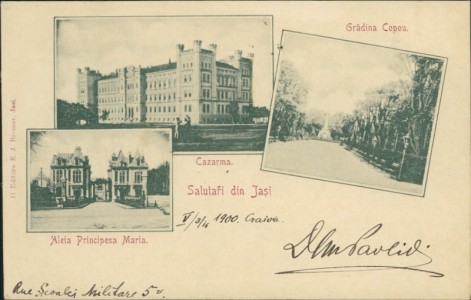 Grădina Copou.
Cazarma.
Salutaři din Jaşi
Aleia Principesa Maria.
11 Editura E. J. Jasi.
V/3/4 1900. Craiova.
DlmPavlidi
Rue Scoalei Militare 5